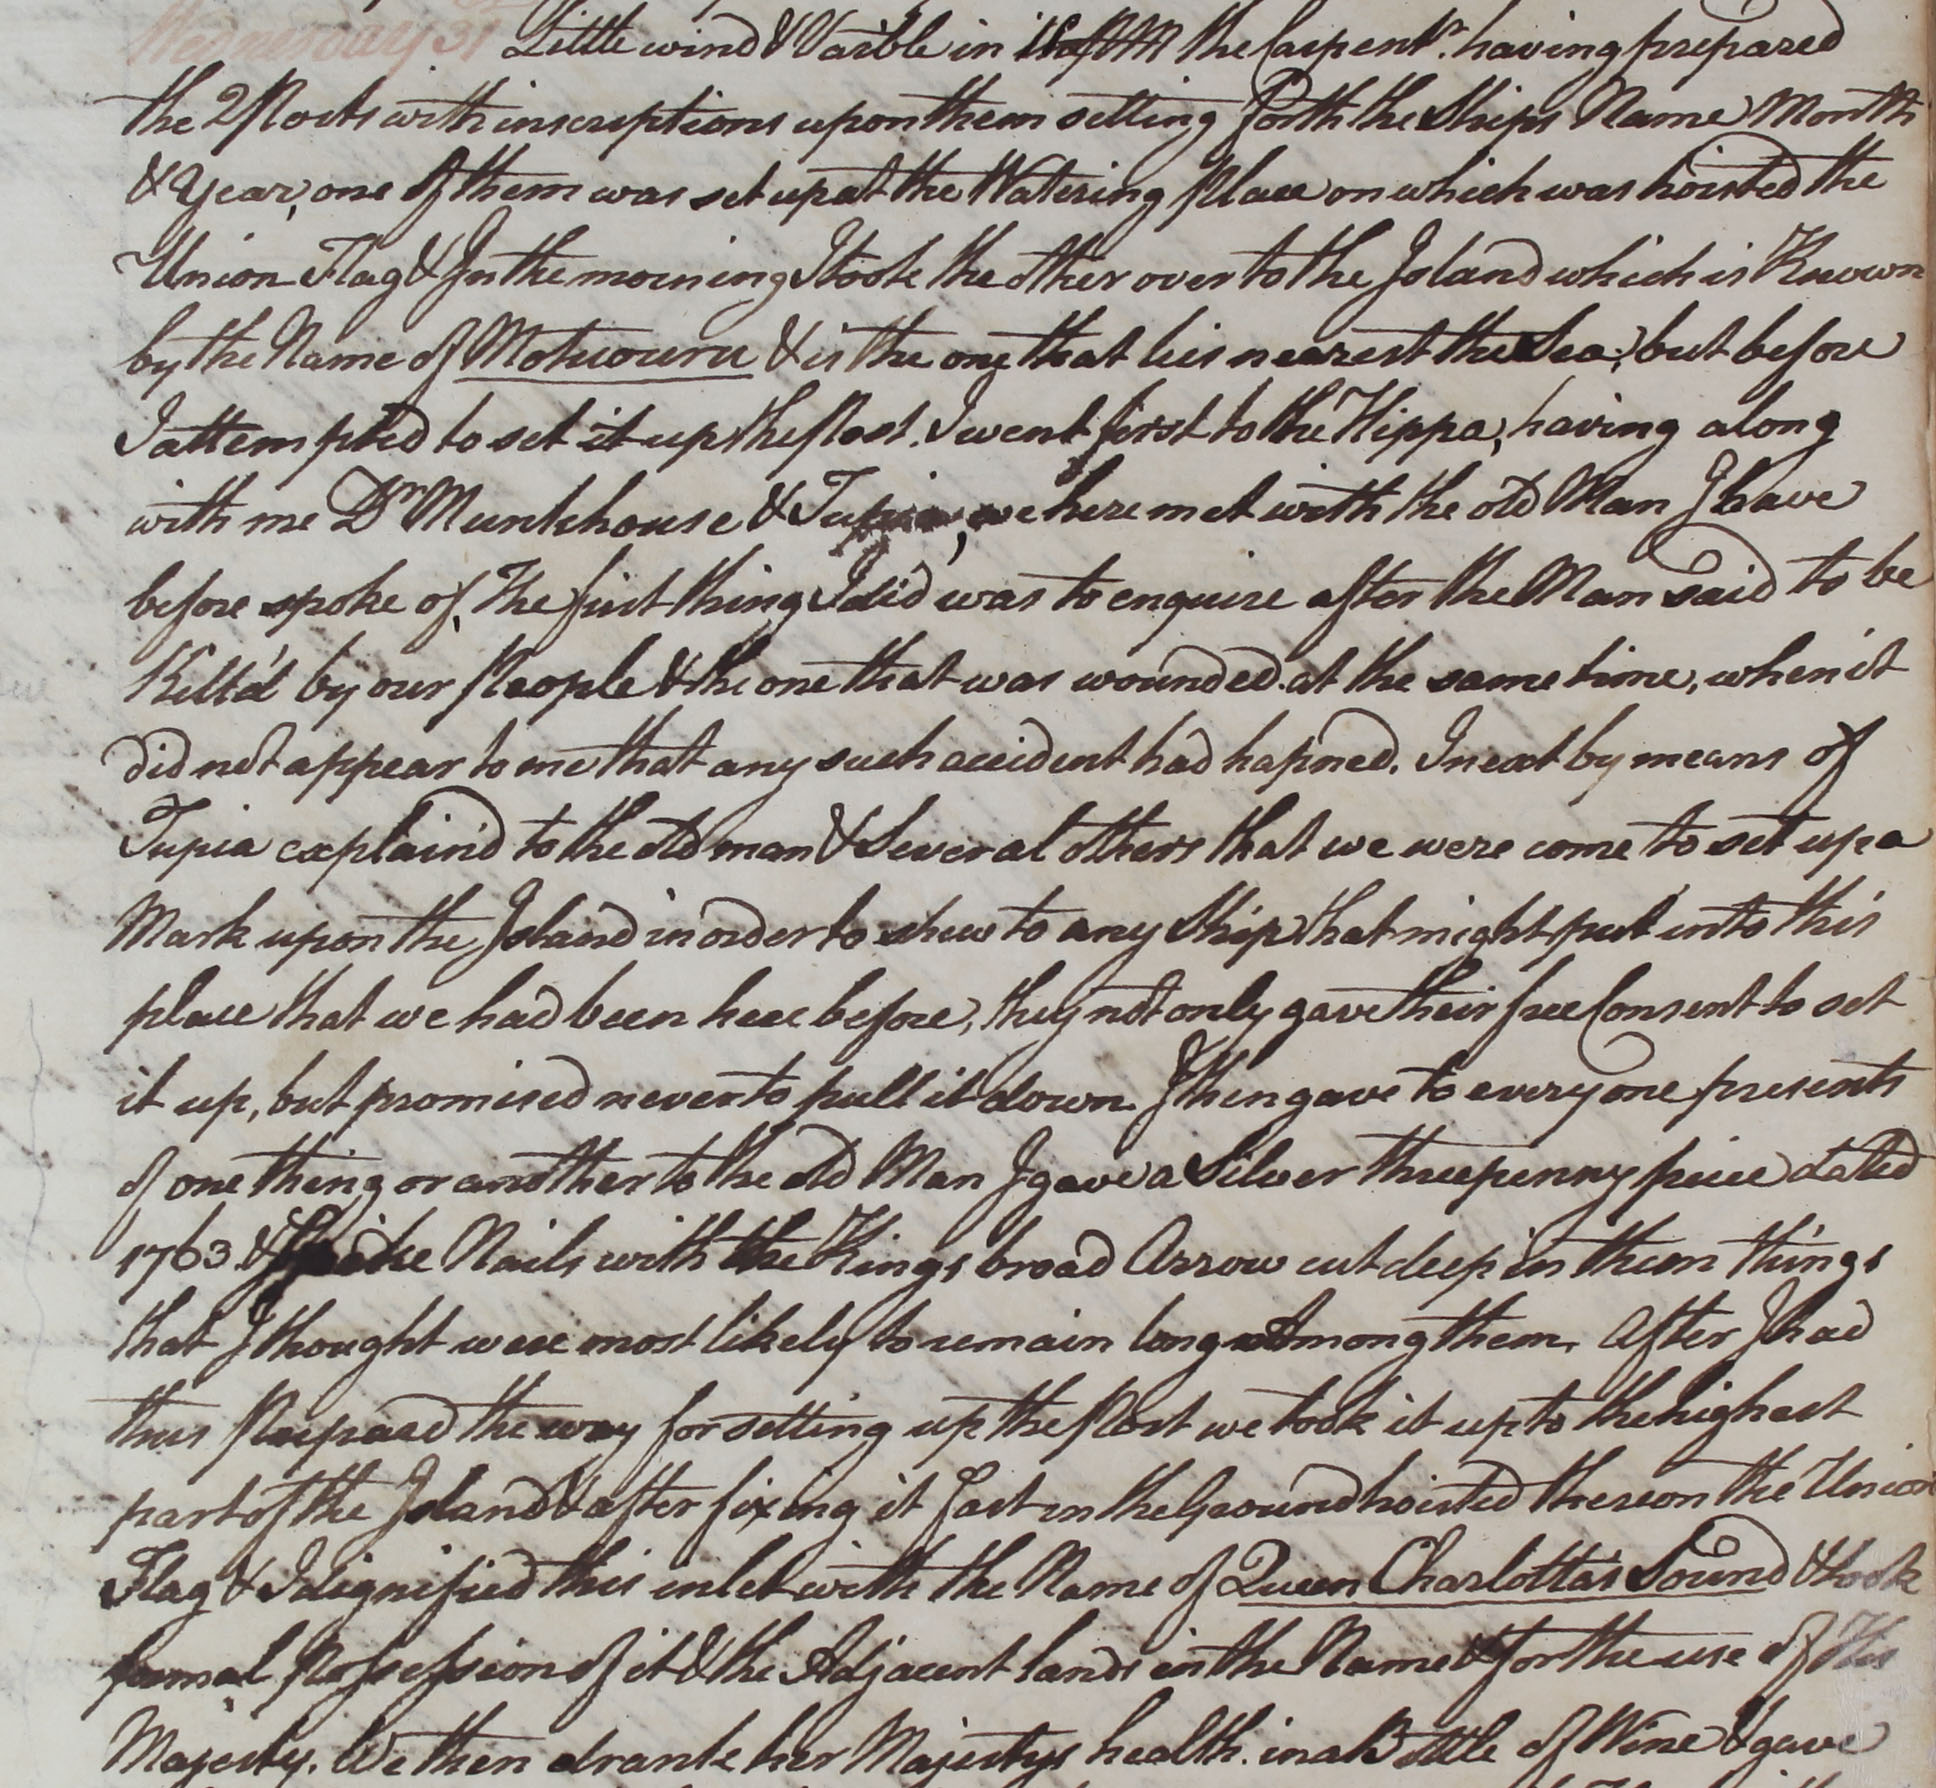 Wednesday 31st Little wind & Varble in the PM the Carpentr. having prepared
the 2 Posts with inscriptions upon them setting forth the Ships Name Month
& Year, one of them was set up at the Watering Place on which was hoisted the
Union Flag & In the morning I took the other over to the Island which is Known
by the Name of Motuouru & is the one that lies nearest the Sea; but before
I attempted to set it up the Post. I went first to the Hippa, having along
with me Dr. Munkhouse & Tupia, we here met with the old Man I have
before spoke of, The first thing I did was to enquire after the Man said to be
Kill'd by our People & the one that was wounded at the same time, when it
did not appear to me that any such accident had hapned. I next by means of
Tupia explain'd to the old man & Several others that we were come to set up a
Mark upon the Island in order to shew to any Ship that might put into this
place that we had been here before, they not only gave their free Consent to set
it up, but promised never to pull it down. I then gave to every one presents
of one thing or another to the old Man I gave a Silver threepenny piece dated
1763 & Spike Nails with the Kings broad Arrow cut deep in them things
that I thought were most likely to remain long among them. After I had
thus Prepared the way for setting up the Post we took it up to the highest
part of the Island & after fixing it fast in the Ground hoisted thereon the Union
Flag & I dignified this inlet with the Name of Queen Charlotta's Sound & took
formal Possession of it & the Adjacent lands in the Name & for the use of His
Majesty. We then drank her Majestys health in a Bottle of Wine & gave